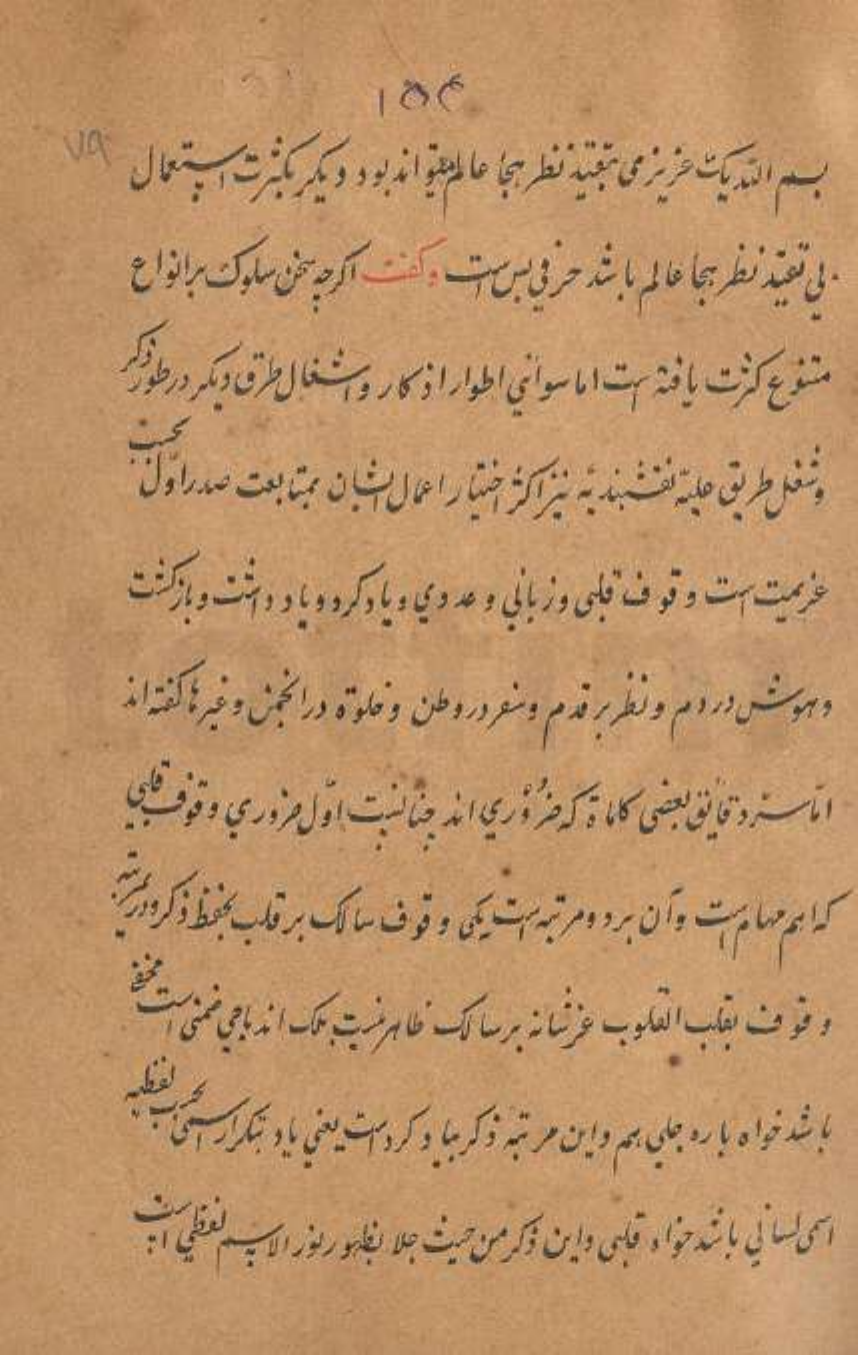 ۱۵۴
۷۹
بسم الله یک عزیز می بتقید نظر بهجا عالم میتواند بود دیگر بکثرت استعمال
بی تقید نظر بهجا عالم باشد حرفی بس است وگفت اگرچه سخن سلوک برانواع
متنوع کثرت یافته است اما سوائی اطوار اذکار واشغال طرق دیگر در طور ذکر
وشغل طریق علیّه نقشبندیّه نیز اکثر اختیار اعمال ایشان بمتابعت صدر اوّل بحسب
عزیمت است وقوف قلبی وزبانی وعددی ویادکرد ویاد داشت وبازگشت
وهوش در دم ونظر بر قدم وسفر در وطن وخلوة در انجمن وغیرها گفته اند
امّا دقائق بعضی کلماة که ضروری اند چنانست اوّل ضروری وقوف قلبی
که اهم مهام است وآن بر دو مرتبه است یکی وقوف سالک بر قلب بحفظ ذکر ودر مرتبه
وقوف بقلب القلوب عزشانه برسالک ظاهر نیست بلک اندماجی ضمنی است مخفی
باشد خواه باره جلی هم واین مرتبه ذکر بیادکرد است یعنی یاد بتکرار اسمی بحسب لفظیه
اسمی لسانی باشد خواه قلبی واین ذکر من حیث جلا بظهور نور الاسم لفظی است